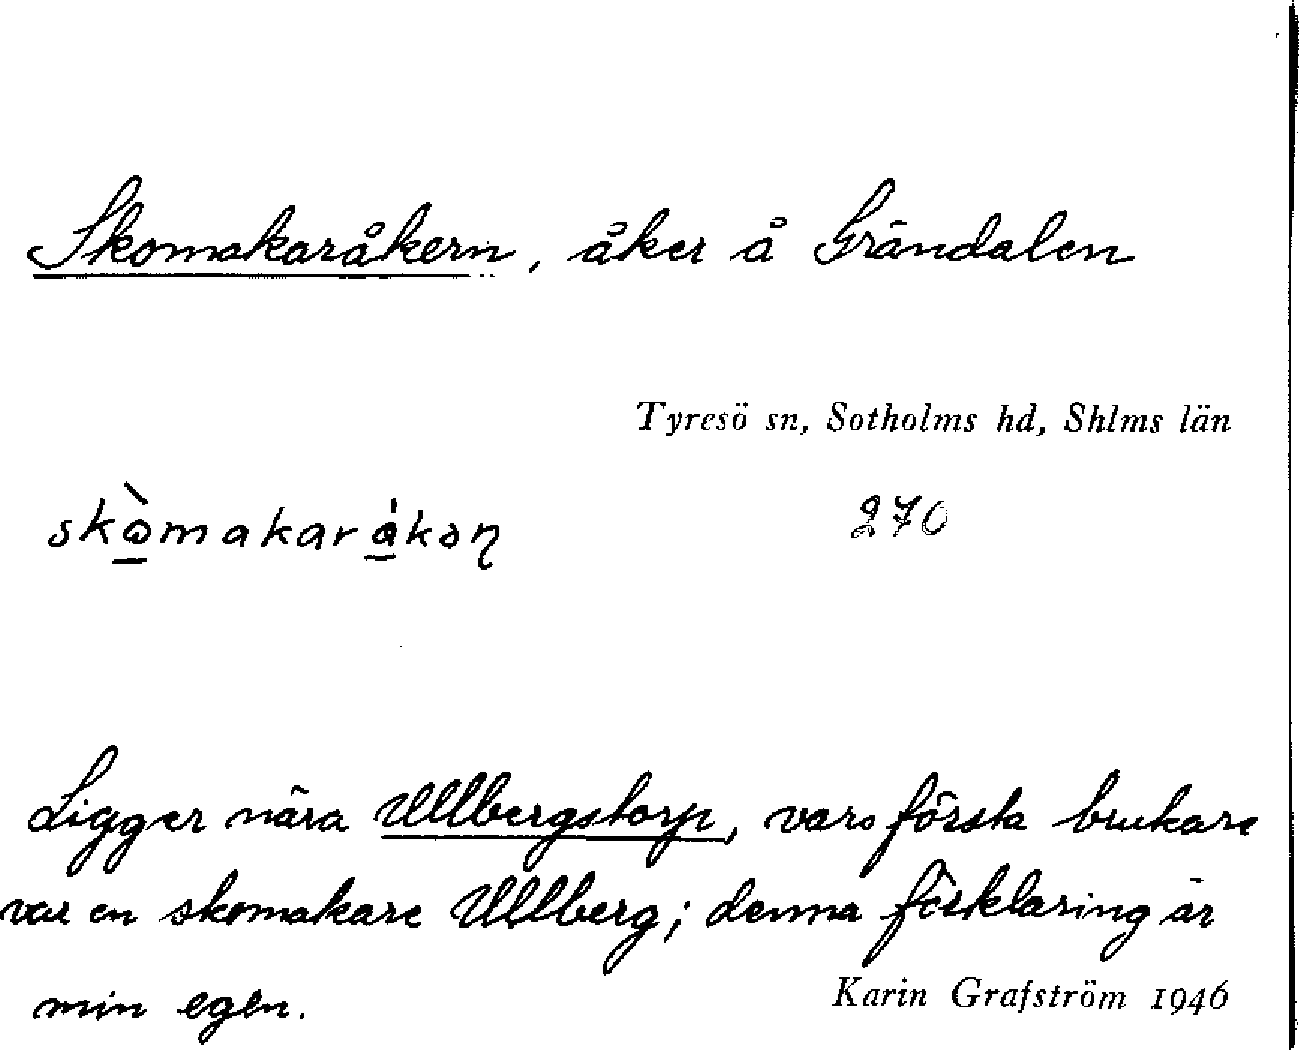 Skomakaråkern, åker å Grändalen
Tyresö sn, Sotholms hd, Shlms län
270
Ligger nära Ullbergstorp, vars första brukare
var en skomakare Ullberg; denna förklaring är
min egen.
Karin Grafström 1946